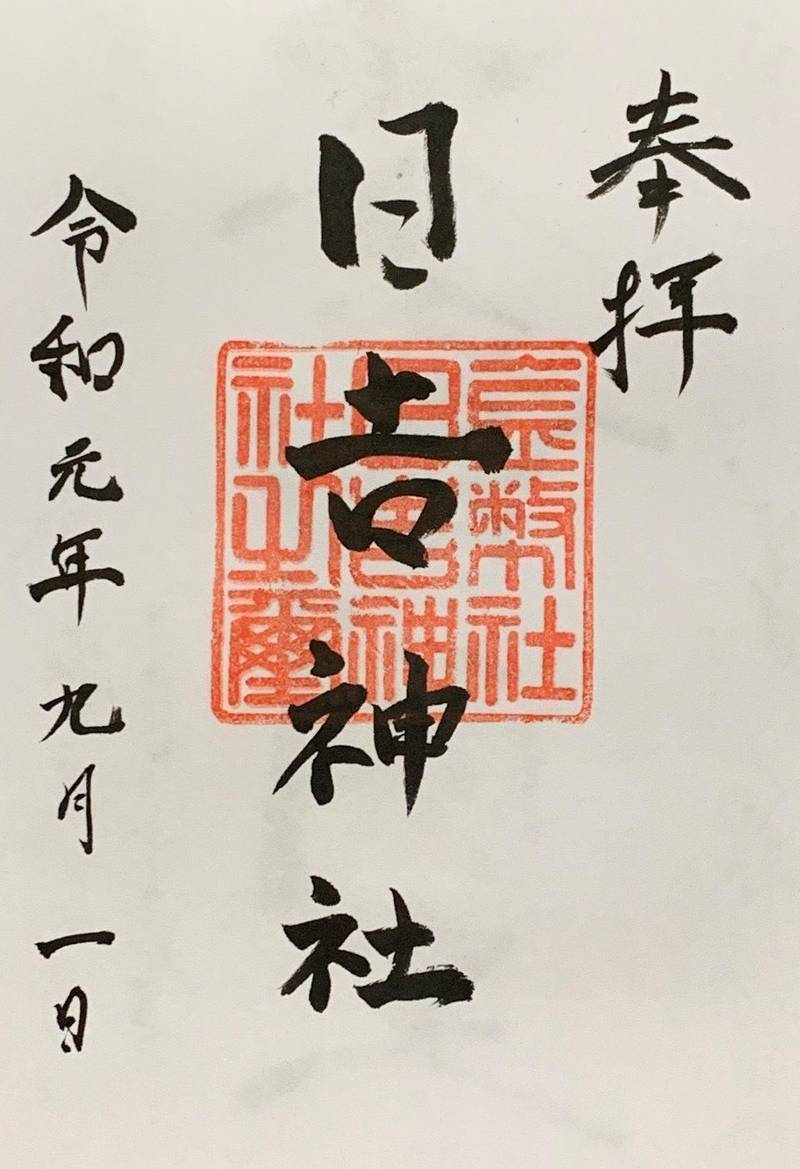 奉拝
日吉神社
令和元年九月一日
幣社
日吉神
社之璽